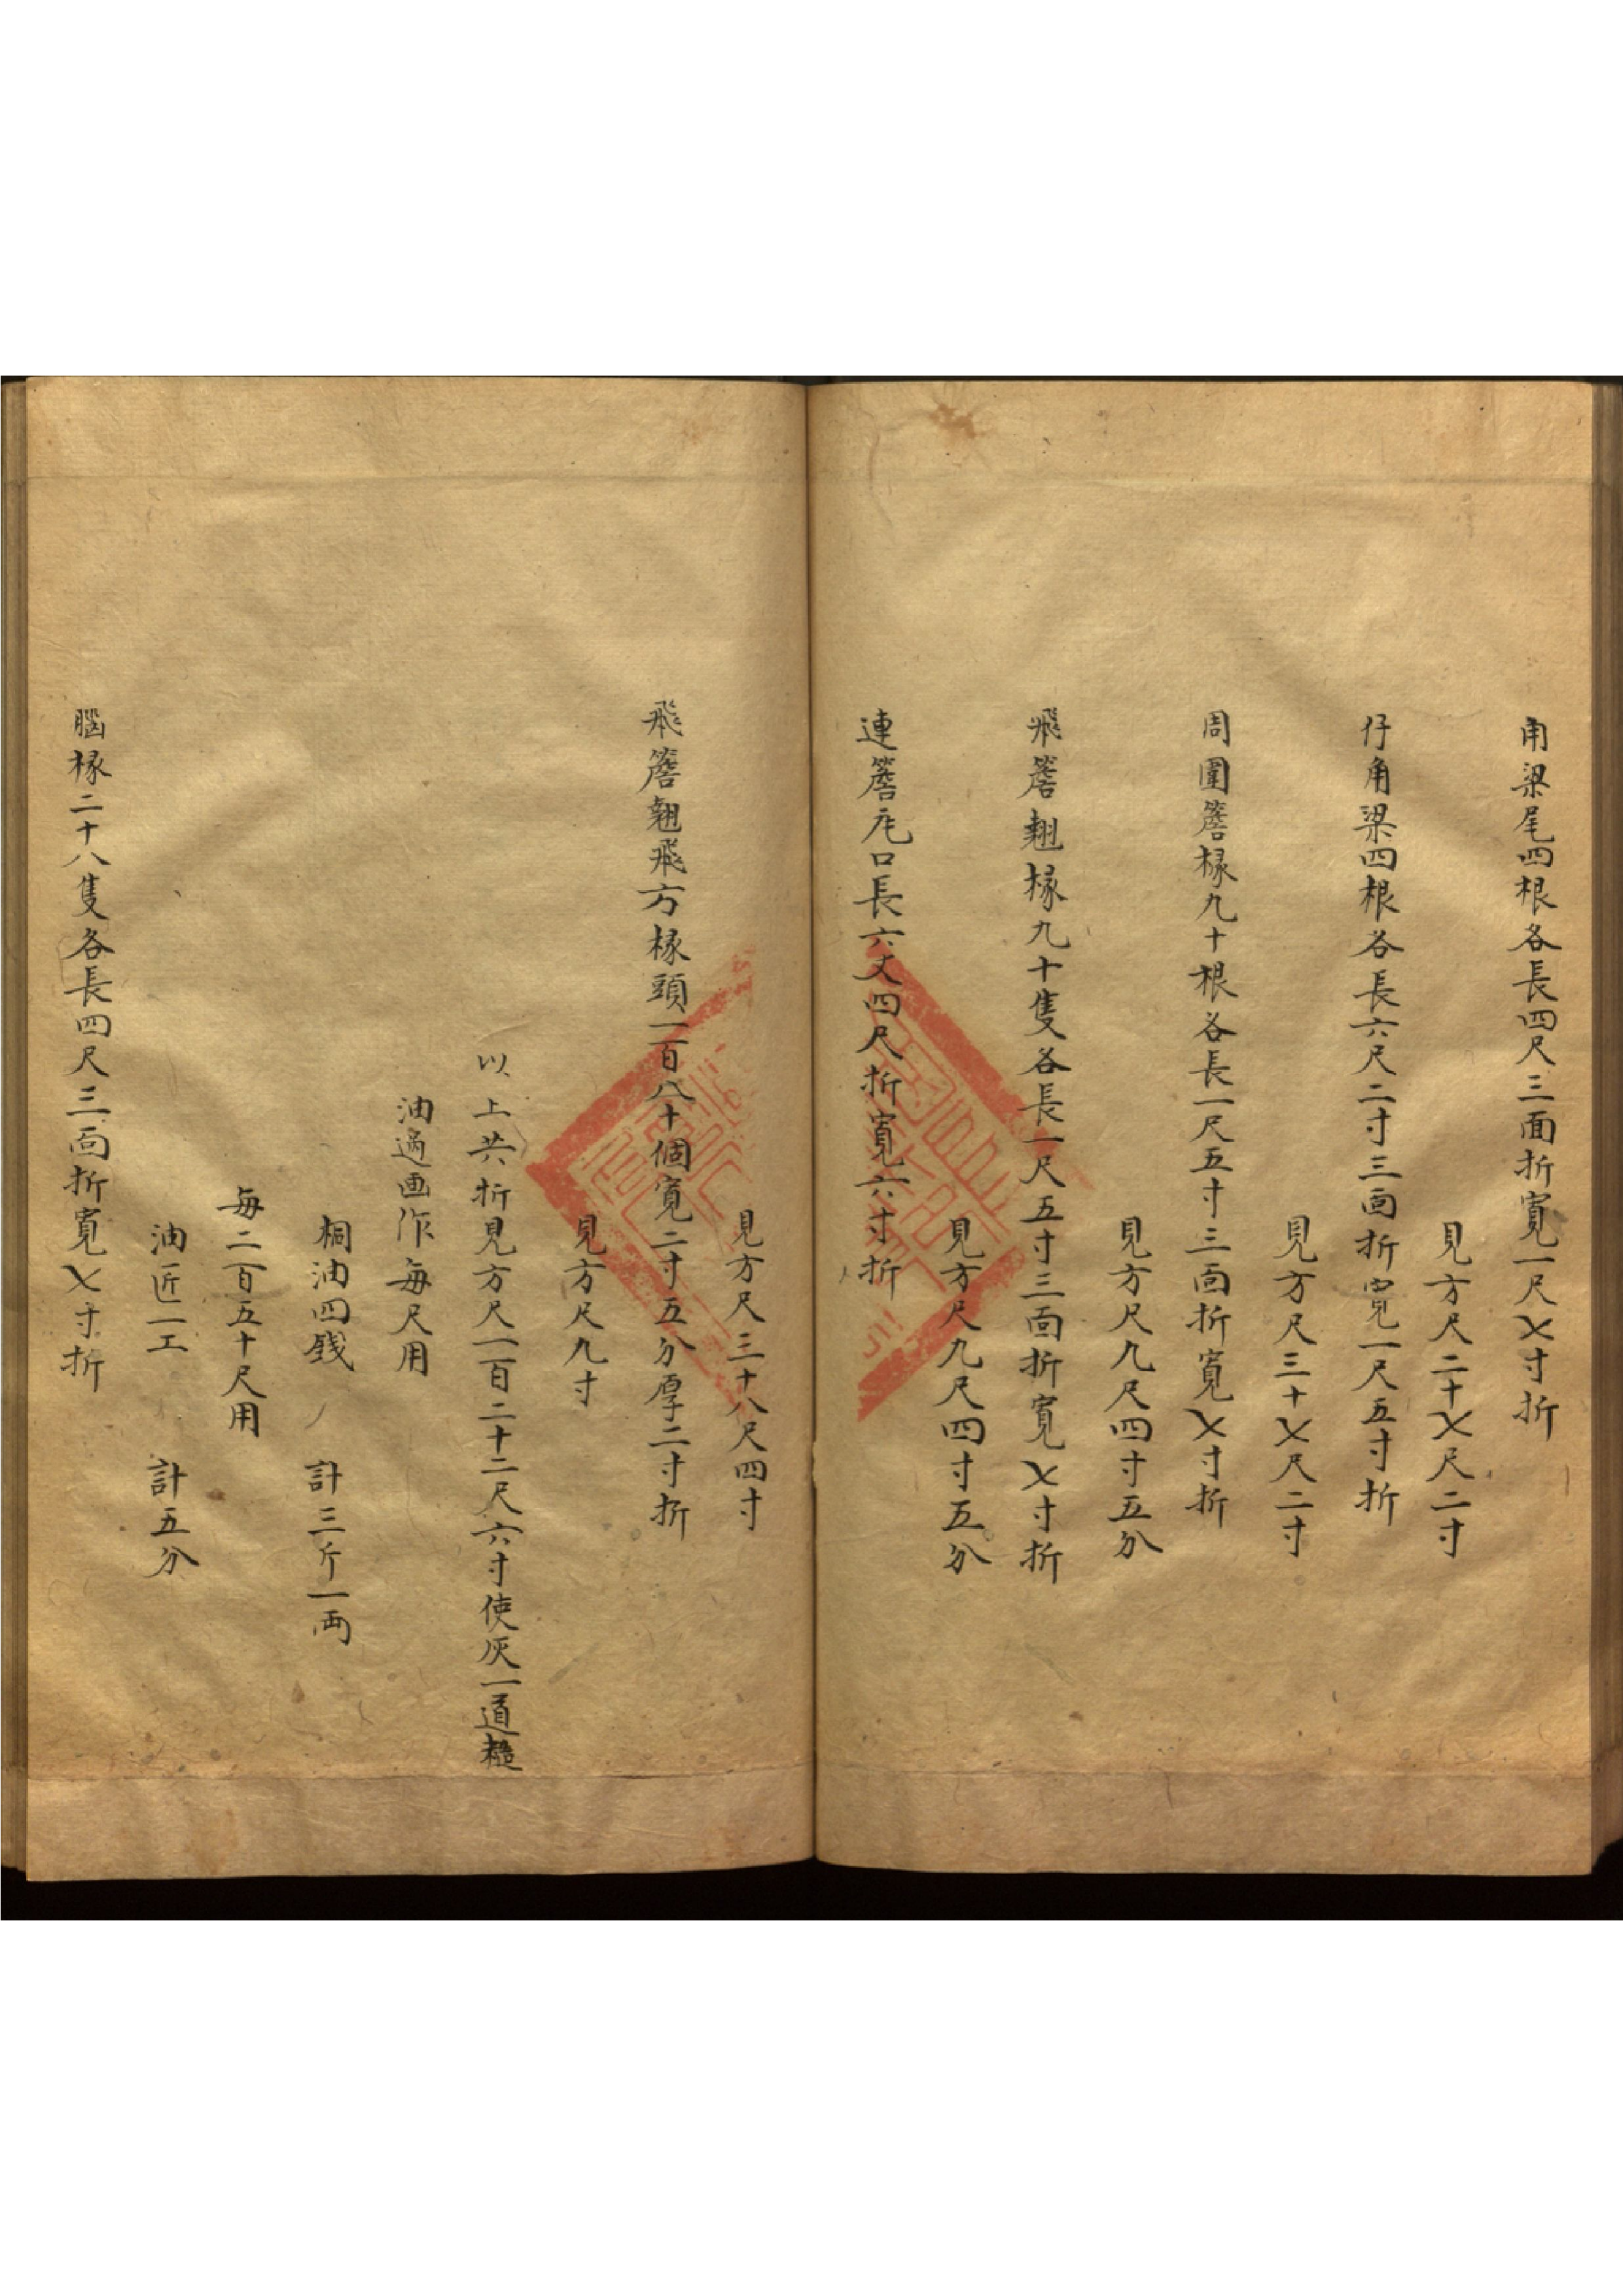 角梁尾四根各長四尺三面折寬一尺七寸折
見方尺二十七尺二寸
仔角梁四根各長六尺二寸三面折寬一尺五寸折
見方尺三十七尺二寸
周圍簷椽九十根各長一尺五寸三面折寬七寸折
見方尺九尺四寸五分
飛簷翹椽九十隻各長一尺五寸三面折寬七寸折
見方尺九尺四寸五分
連簷瓦口長六丈四尺折寬六寸折
見方尺三十八尺四寸
飛簷翹飛方椽頭一百八十個寬二寸五分厚二寸折
見方尺九寸
以上共折見方尺一百二十二尺六寸使灰一道糙
油過画作每尺用
桐油四錢 計三斤一両
每二百五十尺用
油匠一工 計五分
腦椽二十八隻各長四尺三面折寬七寸折